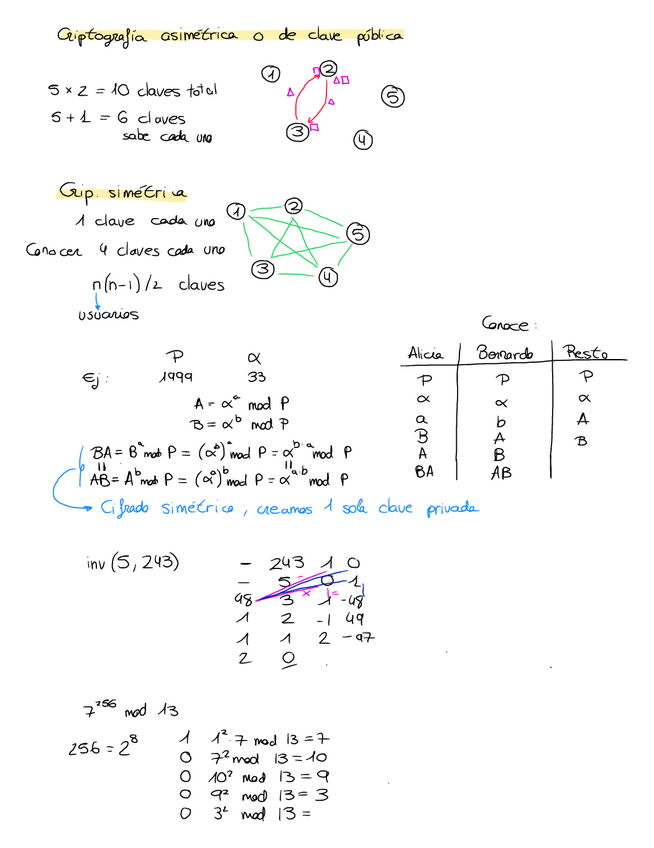 Criptografía asimétrica o de clave pública
5 x 2 = 10 claves total
5 + 1 = 6 claves
sabe cada uno
1 2 3 4 5
Crip. simétrica
1 clave cada uno
Conocer 4 claves cada uno
n(n-1)/2 claves
usuarios
1 2 3 4 5
Conoce:
Alicia Bernardo Resto
P P P
α α α
a b A
B A B
A B
BA AB
P α
Ej: 1999 33
A = α^a mod P
B = α^b mod P
BA = B^a mod P = (α^b)^a mod P = α^b·a mod P
AB = A^b mod P = (α^a)^b mod P = α^a·b mod P
Cifrado simétrico, creamos 1 sola clave privada
inv (5, 243)
- 243 1 0
- 5 0 1
48 3 1 -48
1 2 -1 49
1 1 2 -97
2 0
7^256 mod 13
256 = 2^8
1 1²·7 mod 13 = 7
0 7² mod 13 = 10
0 10² mod 13 = 9
0 9² mod 13 = 3
0 3² mod 13 =